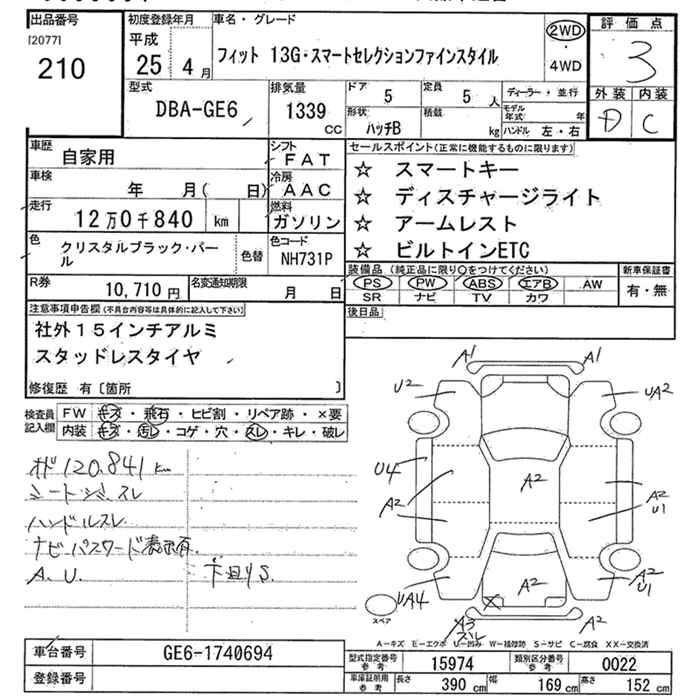 出品番号
[2077]
210
初度登録年月
平成
25年 4月
車名・グレード
フィット 13G・スマートセレクションファインスタイル
2WD
・
4WD
評価点
3
外装 内装
D C
型式
DBA-GE6
排気量
1339
CC
ドア
5
定員
5人
形状
ハッチB
積載
kg
ディーラー・並行
モデル年式 年
ハンドル 左・右
車歴
自家用
シフト
FAT
車検
年 月( 日)
冷房
AAC
走行
12万0千840 km
燃料
ガソリン
色
クリスタルブラック・パール
色替
色コード
NH731P
R券
10,710円
名変通知期限
月 日
セールスポイント(正常に機能するものに限ります)
☆ スマートキー
☆ ディスチャージライト
☆ アームレスト
☆ ビルトインETC
装備品(純正品に限り○をつけてください)
PS PW ABS エアB AW
SR ナビ TV カワ
新車保証書
有・無
後日品
注意事項申告欄(不具合内容等は具体的に記入して下さい)
社外15インチアルミ
スタッドレスタイヤ
修復歴 有〔箇所 〕
検査員記入欄
FW キズ・飛石・ヒビ割・リペア跡・×要
内装 キズ・汚レ・コゲ・穴・スレ・キレ・破レ
120,841km
ハンドルスレ
ナビパスワード表示有.
A.U. 下廻りS
A1 A1
U2 UA2
U4 A2
A2 A2
A2 U1
A2
UA4 A2
U1
A3
スレ
A2
スペア
A－キズ E－エクボ U－凹み W－補修跡 S－サビ C－腐食 XX－交換済
車台番号
GE6-1740694
登録番号
型式指定番号
参考
15974
類別区分番号
参考
0022
車庫証明用
参考
長さ 390cm
幅 169cm
高さ 152cm